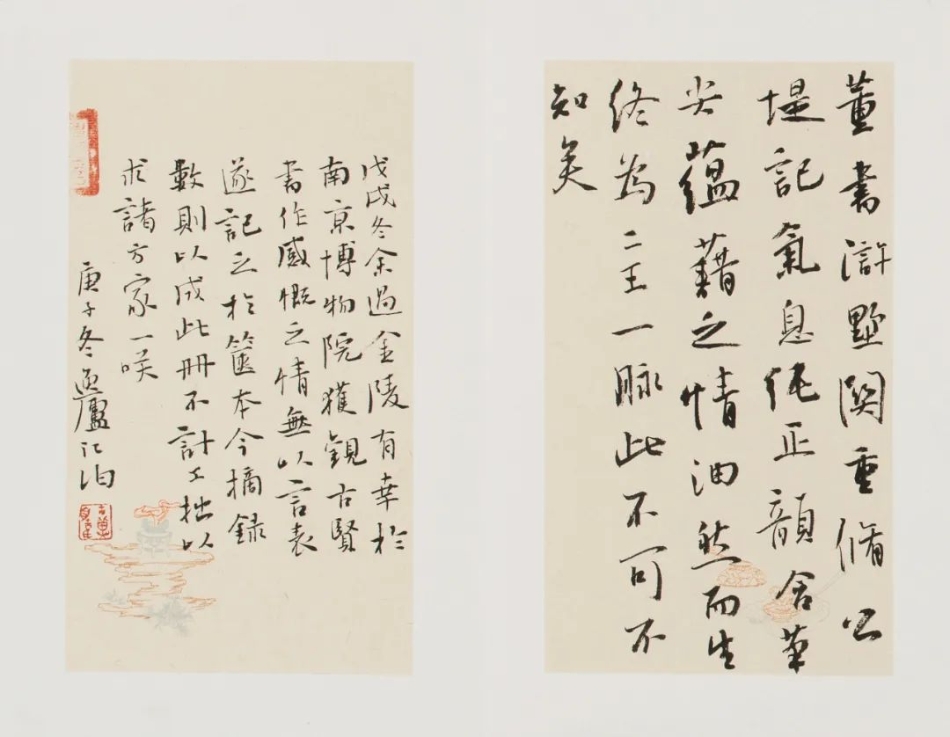 董書滸墅關重脩公
堤記氣息純正韻含筆
尖蘊藉之情油然而生
終為二王一脉此不可不
知矣
戊戌冬余過金陵有幸於
南京博物院獲觀古賢
書作感慨之情無以言表
遂記之於篋本今摘録
數則以成此冊不計工拙以
求諸方家一咲
庚子冬廬江